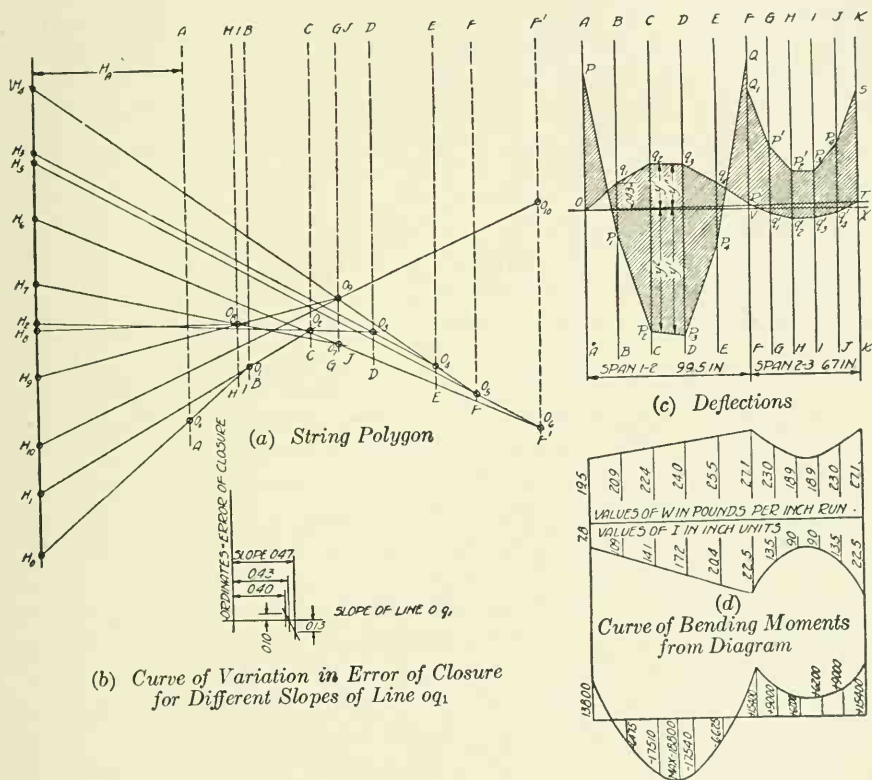 A HI B C GJ D E F F'
H_A
H_4
H_3
H_5
H_6
H_7
H_2
H_8
H_9
H_10
H_1
H_0
O_9
O_10
O_2
O_3
O_7
O_1
O_4
O_5
O_6
A
H I B
C
G J
D
E
F
F'
(a) String Polygon
ORDINATES = ERROR OF CLOSURE
SLOPE 047
043
040
010
013
SLOPE OF LINE O q₁
(b) Curve of Variation in Error of Closure
for Different Slopes of Line oq₁
A B C D E F G H I J K
P
Q
Q₁
S
P'
P'₂
q₁
q₂
q₃
q₄
O
T
X
V
q'₁
q'₂
q'₃
q'₄
y
y'
P₁
P₂
P₃
P₄
A B C D E F G H I J K
SPAN 1-2 99.5 IN
SPAN 2-3 67 IN
(c) Deflections
19.5 20.9 22.4 24.0 25.5 27.1 23.0 18.9 18.9 23.0 27.1
VALUES OF W IN POUNDS PER INCH RUN.
VALUES OF I IN INCH UNITS
7.8 10.9 14.1 17.2 20.4 22.5 13.5 9.0 9.0 13.5 22.5
(d)
Curve of Bending Moments
from Diagram
13800 -6475 -17510 -18800 -17540 -6625 +15400 +9000 +6200 +6200 +9000 +15400